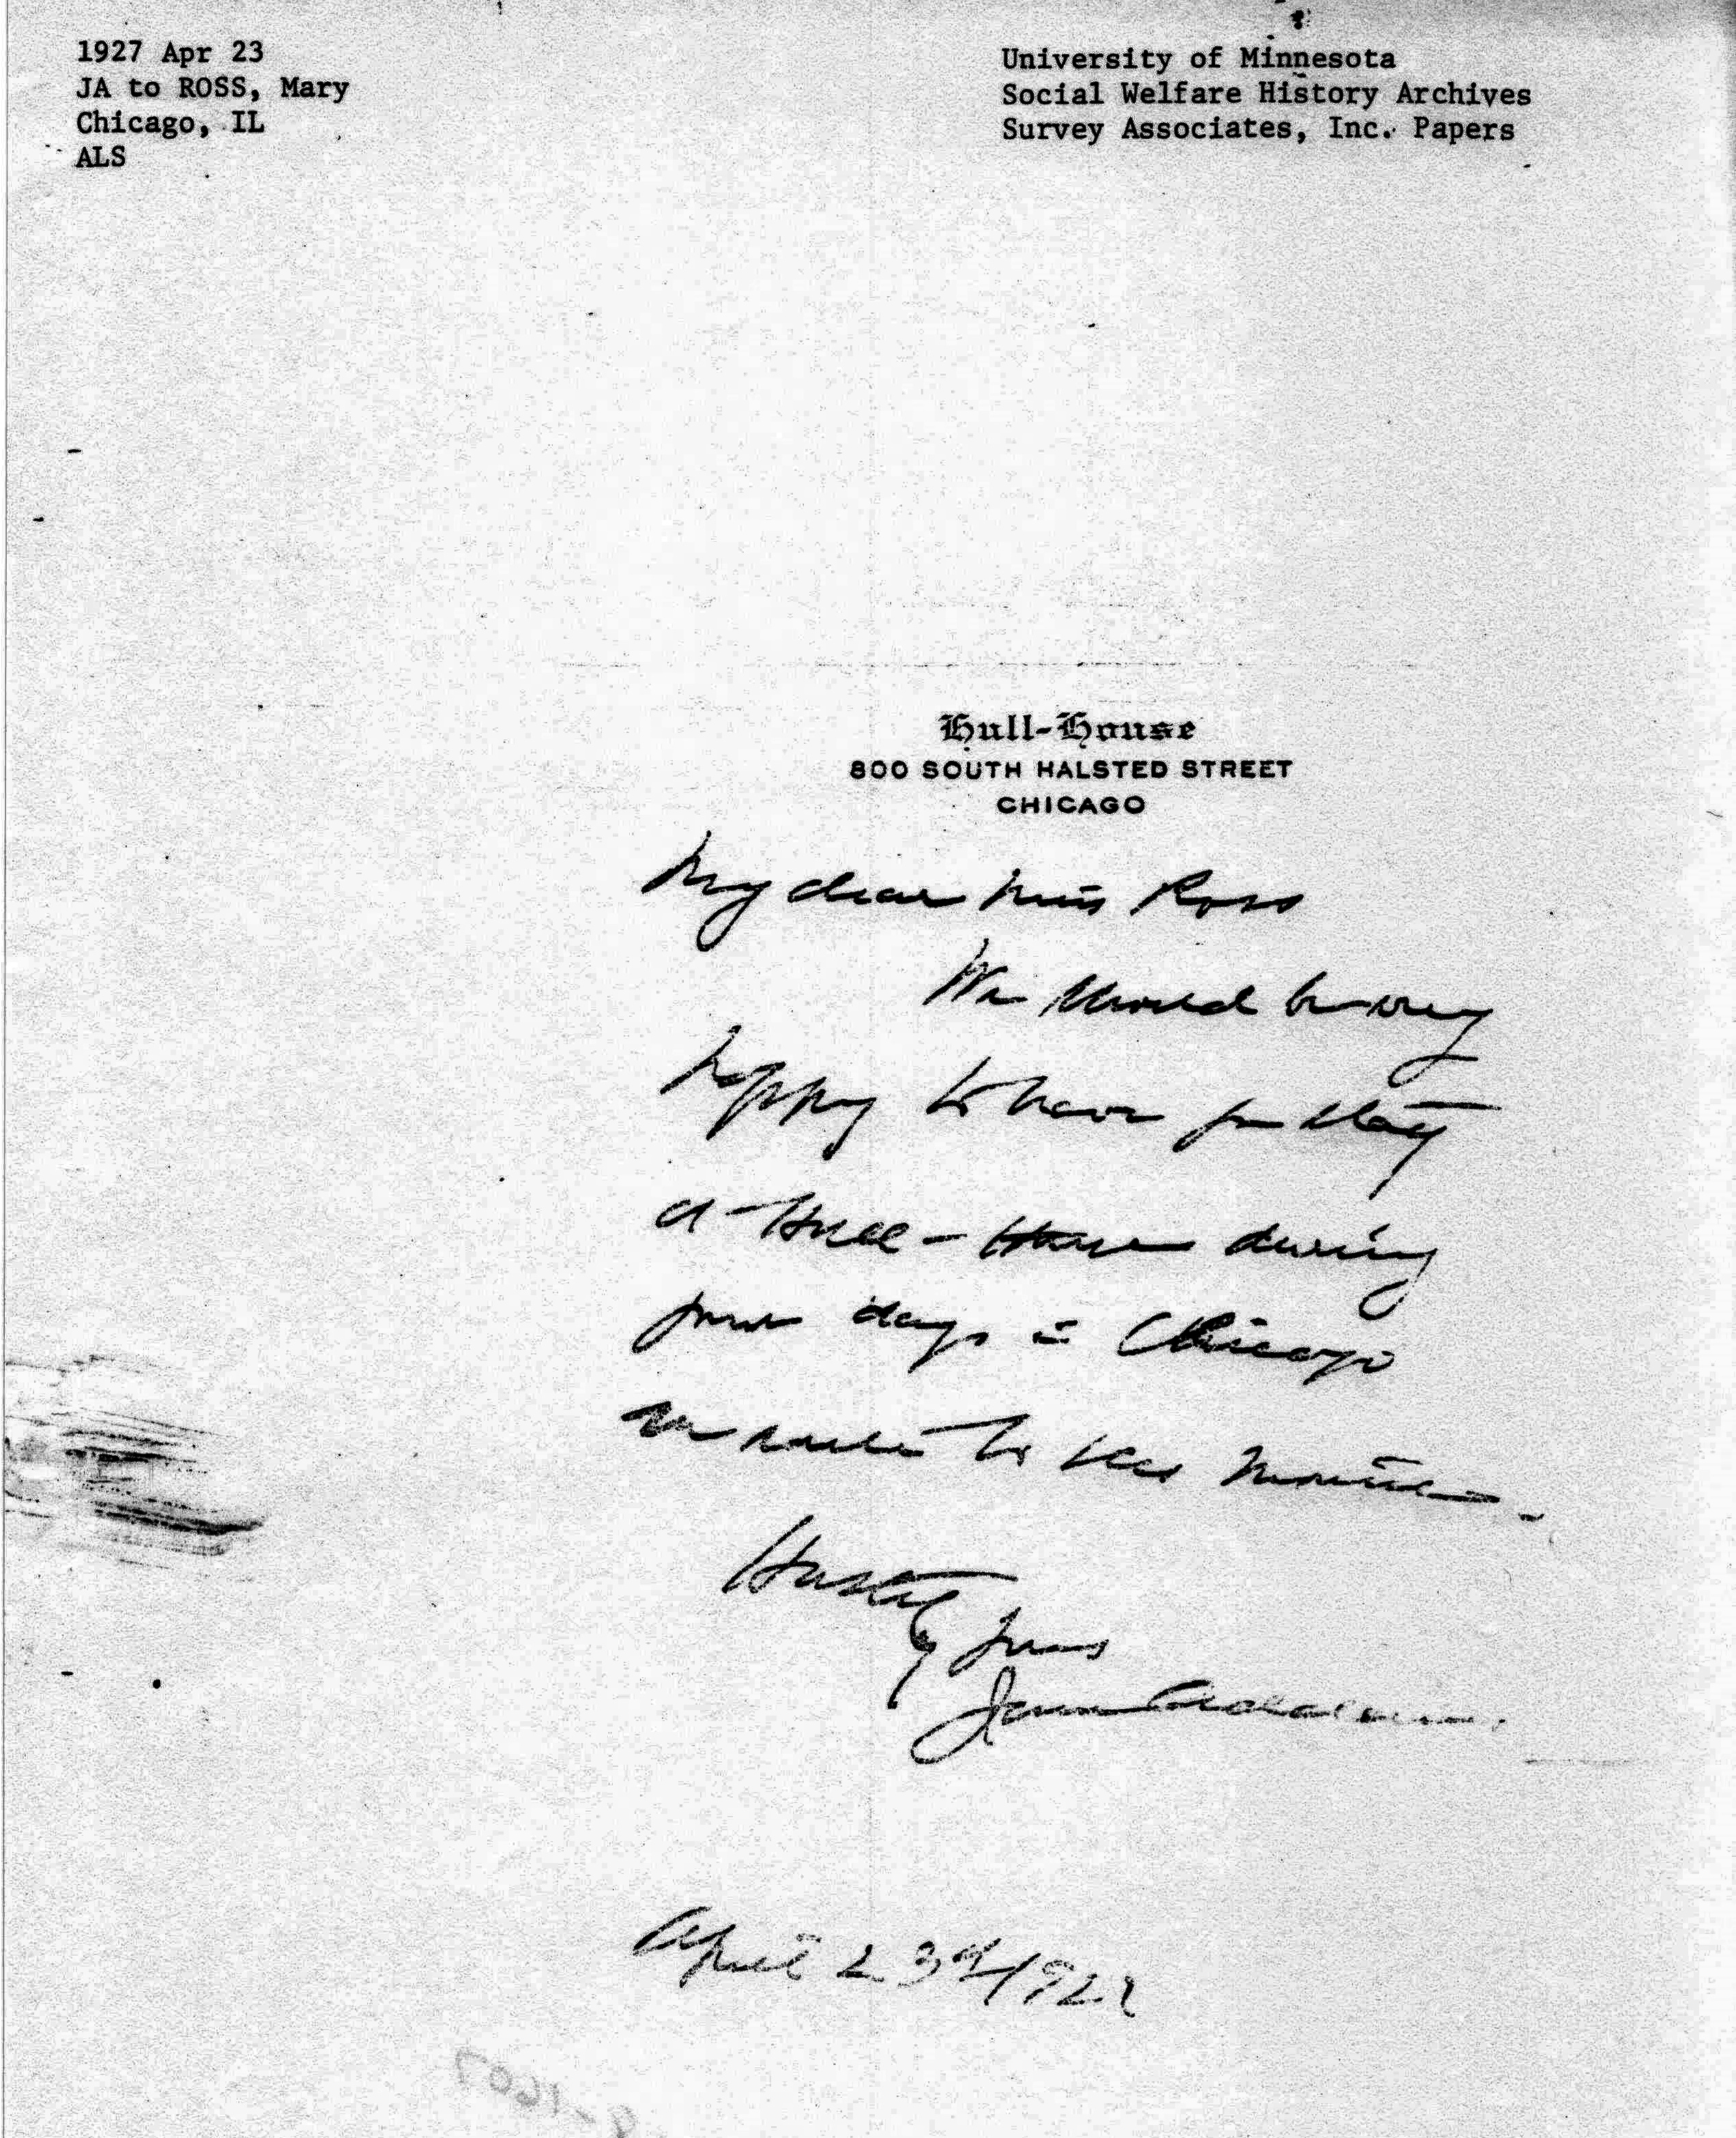 1927 Apr 23
JA to ROSS, Mary
Chicago, IL
ALS
University of Minnesota
Social Welfare History Archives
Survey Associates, Inc. Papers
Hull-House
800 SOUTH HALSTED STREET
CHICAGO
My dear Miss Ross
We should be very
happy to have you stay
at Hull-House during
your days in Chicago
en route to Des Moines.
Hastily yours
Jane Addams.
April 23d/1927